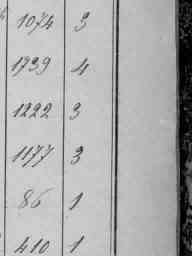 1074 3
1739 4
1222 3
1177 3
86 1
410 1